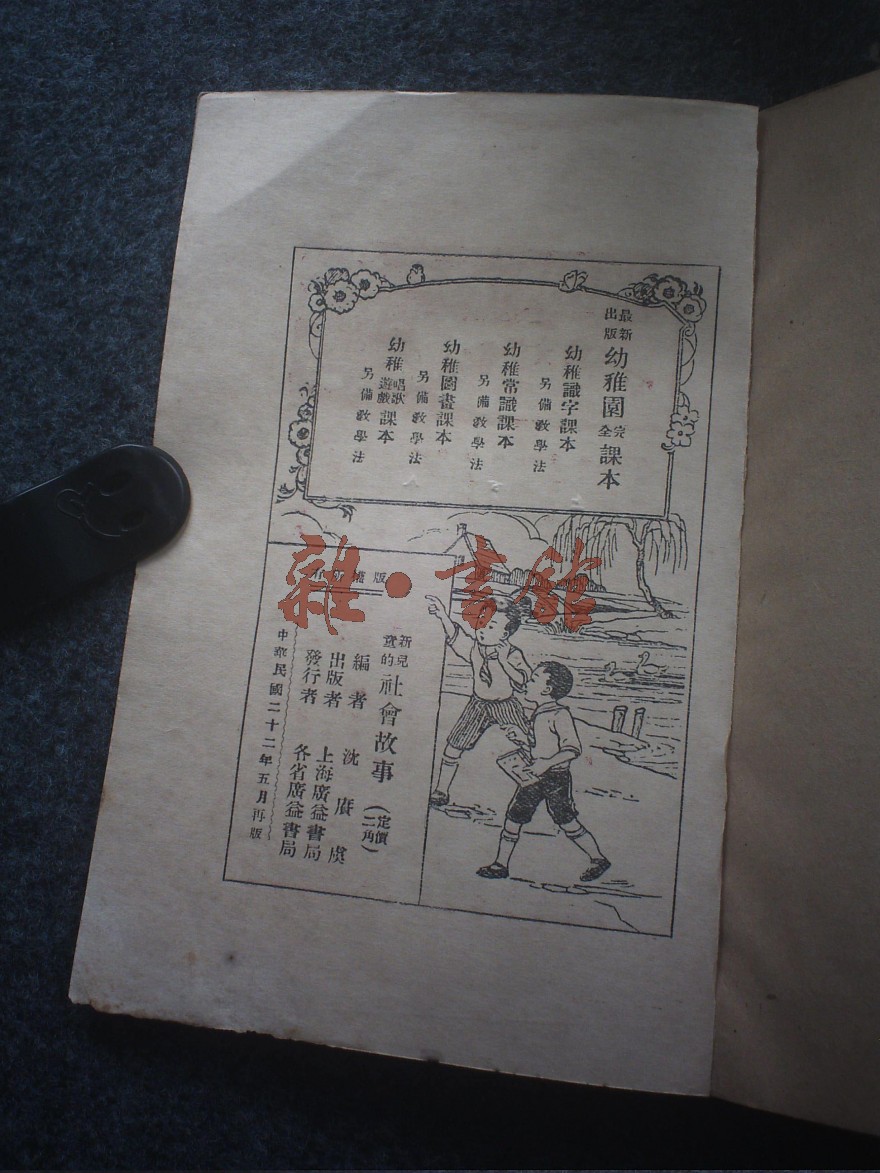 最新出版 幼稚園 完全 課本
幼稚識字課本
另備教學法
幼稚常識課本
另備教學法
幼稚圖畫課本
另備教學法
幼稚唱歌遊戲課本
另備教學法
版權所有
新兒童的 社會故事 (定價二角)
編者 沈賡虞
出版者 上海廣益書局
發行者 各省廣益書局
中華民國二十二年五月再版
雜·書館